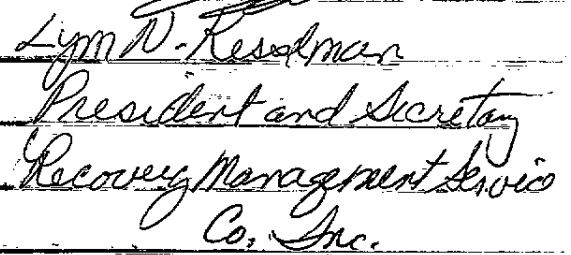 Lynn N. Kesselman
President and Secretary
Recovery Management Service
Co. Inc.